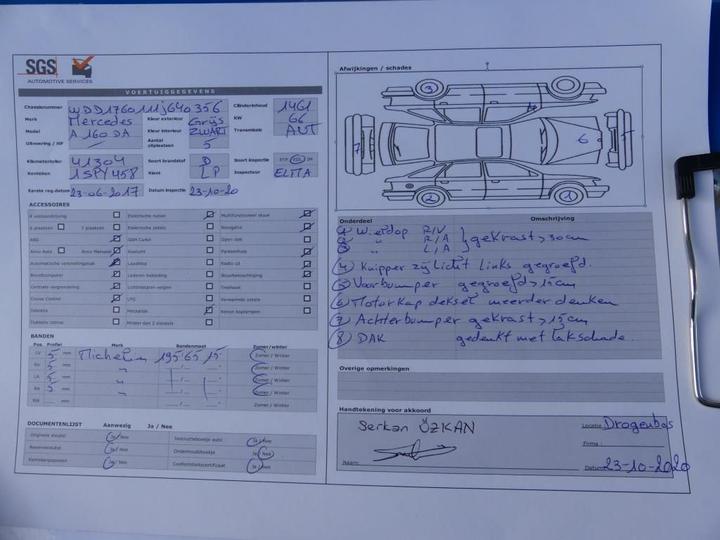 SGS
AUTOMOTIVE SERVICES
VOERTUIGGEGEVENS
Chassisnummer WDD1760111j640356 Cilinderinhoud 1461
Merk Mercedes Kleur exterieur Grijs KW 66
Model A 160 DA Kleur interieur ZWART Transmissie AUT
Uitvoering / HP Aantal zitplaatsen 5
Kilometerteller 41304 Soort brandstof D Soort inspectie
Kenteken 1SPY458 Klant LP Inspecteur ELTTA
Eerste reg.datum 23-06-2017 Datum inspectie 23-10-20
ACCESSOIRES
4 wielaandrijving Elektrische ruiten Multifunctioneel stuur
5 plaatsen 7 plaatsen Elektrische zetels Navigatie
ABS GSM Carkit Open dak
Airco Auto Airco Manueel Parkeerhulp
Automatische versnellingsbak Laadklep Radio cd
Boordcomputer Lederen bekleding Stuurbekrachtiging
Centrale vergrendeling Lichtmetalen velgen Trekhaak
Cruise Control LPG Verwarmde zetels
Dakrails Metaalkleur Xenon koplampen
Dubbele cabine
BANDEN
Pos. Profiel Merk Bandenmaat Zomer/winter
LV 5 mm Michelin 195 65 15 Zomer / Winter
RV 5 mm " Zomer / Winter
LA 5 mm " Zomer / Winter
RA 5 mm " Zomer / Winter
RW mm Zomer / Winter
DOCUMENTENLIJST Aanwezig Ja / Nee
Originele sleutel Ja / Nee Instructieboekje auto Ja / Nee
Reservesleutel Ja / Nee Onderhoudsboekje Ja / Nee
Kentekenpapieren Ja / Nee Conformiteitscertificaat Ja / Nee
Afwijkingen / schades
3
7 6 5
2 1
Onderdeel Omschrijving
1 Wieldop R/V
2 " R/A } gekrast > 30cm
3 " L/A
4 Knipper zijlicht links gegroefd.
5 Voorbumper gegroefd > 15cm
6 Motorkap deksel meerder deuken
7 Achterbumper gekrast > 15cm
8 DAK gedeukt met lakschade.
Overige opmerkingen
Handtekening voor akkoord
Serkan ÜZKAN Locatie: Drogenbos
Firma :
Naam: Datum: 23-10-2020